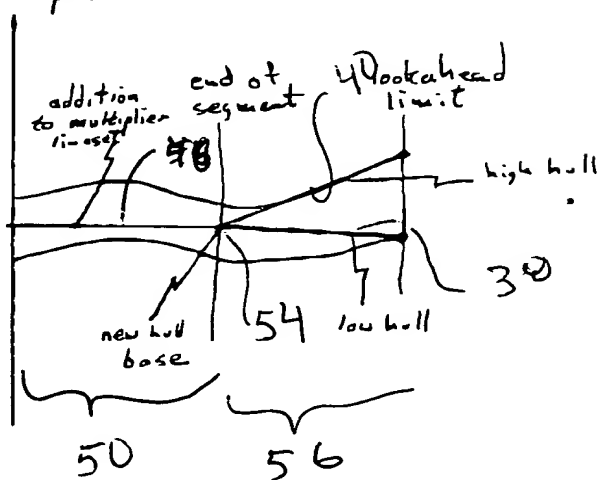 addition
to multiplier
end of
segment
lookahead
limit
high hull
30
54
low hull
new hull
base
50
56